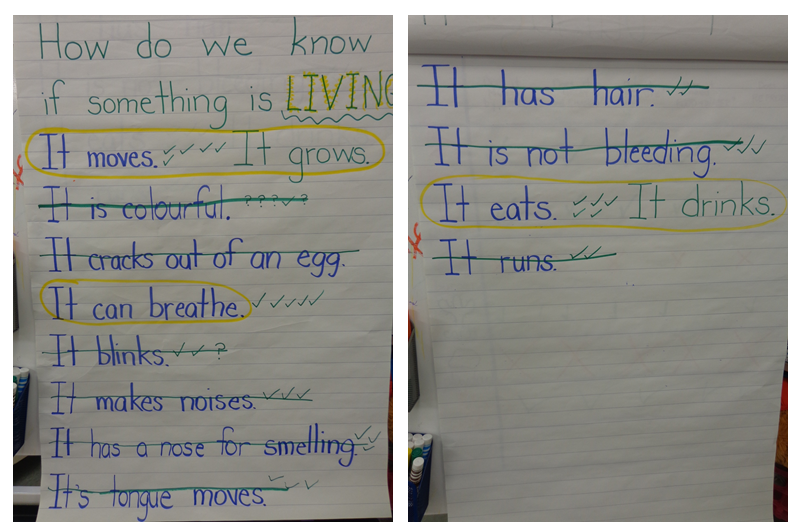 How do we know
if something is LIVING
It moves. ✓✓✓✓ It grows.
It is colourful. ???✓?
It cracks out of an egg.
It can breathe. ✓✓✓✓
It blinks. ✓✓?
It makes noises. ✓✓✓
It has a nose for smelling. ✓✓✓
It's tongue moves. ✓✓✓
It has hair. ✓✓
It is not bleeding. ✓✓✓
It eats. ✓✓✓✓✓ It drinks.
It runs. ✓✓